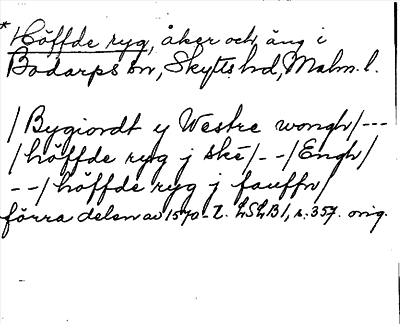 * Höffde ryg, åker och äng i
Bodarps sn, Skytts hd, Malm. l.
/Bygiordt y Westre wongh/---
/höffde ryg j skè/--/Engh/
--/höffde ryg j fauffn/
förra delen av 1570-t. LSLB1, s. 357. orig.